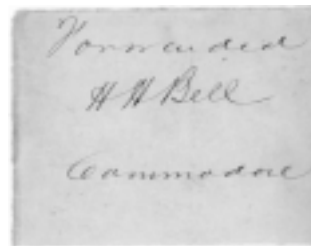 Forwarded
H H Bell
Commodore